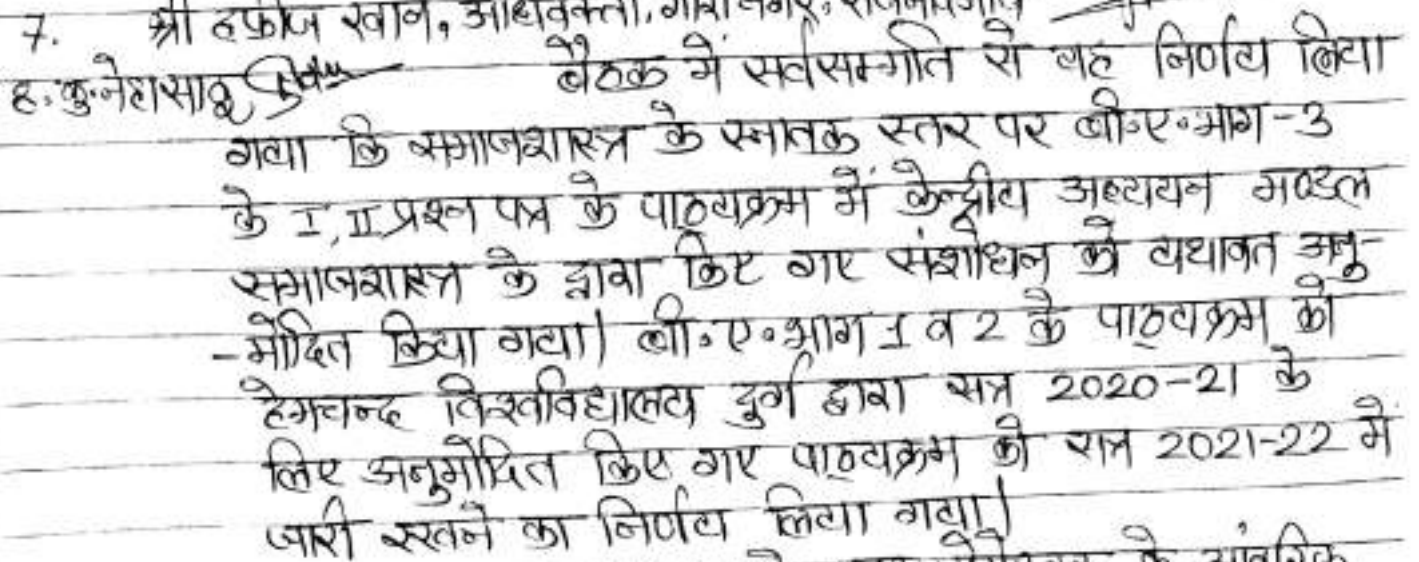 7. श्री हफीज खान, अधिवक्ता, गौरी नगर, राजनांदगांव
ह. कु. नेहा साहू बैठक में सर्वसम्मति से यह निर्णय लिया
गया कि समाजशास्त्र के स्नातक स्तर पर बी॰ए॰भाग-3
के I, II प्रश्न पत्र के पाठ्यक्रम में केन्द्रीय अध्ययन मण्डल
समाजशास्त्र के द्वारा किए गए संशोधन को यथावत अनु-
-मोदित किया गया। बी॰ए॰भाग 1 व 2 के पाठ्यक्रम को
हेमचन्द विश्वविद्यालय दुर्ग द्वारा सत्र 2020-21 के
लिए अनुमोदित किए गए पाठ्यक्रम को सत्र 2021-22 में
जारी रखने का निर्णय लिया गया।